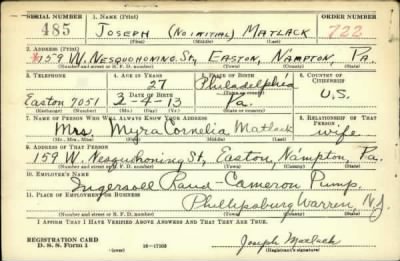 SERIAL NUMBER 1. NAME (Print) ORDER NUMBER
485 JOSEPH (NO INITIAL) MATLACK 722
(First) (Middle) (Last)
2. ADDRESS (Print)
159 W. NESQUOHONING. St, EASTON, NAMPTON, PA.
(Number and street or R. F. D. number) (Town) (County) (State)
3. TELEPHONE 4. AGE IN YEARS 5. PLACE OF BIRTH 6. COUNTRY OF CITIZENSHIP
27 Philadelphia
DATE OF BIRTH
Easton 7051 2-4-13 Pa. U.S.
(Exchange) (Number) (Mo.) (Day) (Yr.) (State or country)
7. NAME OF PERSON WHO WILL ALWAYS KNOW YOUR ADDRESS 8. RELATIONSHIP OF THAT PERSON
Mrs. Myra Cornelia Matlack wife
(Mr., Mrs., Miss) (First) (Middle) (Last)
9. ADDRESS OF THAT PERSON
159 W. Nesquhoning St, Easton, Nampton, Pa.
(Number and street or R. F. D. number) (Town) (County) (State)
10. EMPLOYER'S NAME
Ingersoll Rand-Cameron Pump,
11. PLACE OF EMPLOYMENT OR BUSINESS
Phillipsburg Warren, N.J.
(Number and street or R. F. D. number) (Town) (County) (State)
I AFFIRM THAT I HAVE VERIFIED ABOVE ANSWERS AND THAT THEY ARE TRUE.
REGISTRATION CARD
D. S. S. Form 1 (over) 16—17105
Joseph Matlack
(Registrant's signature)